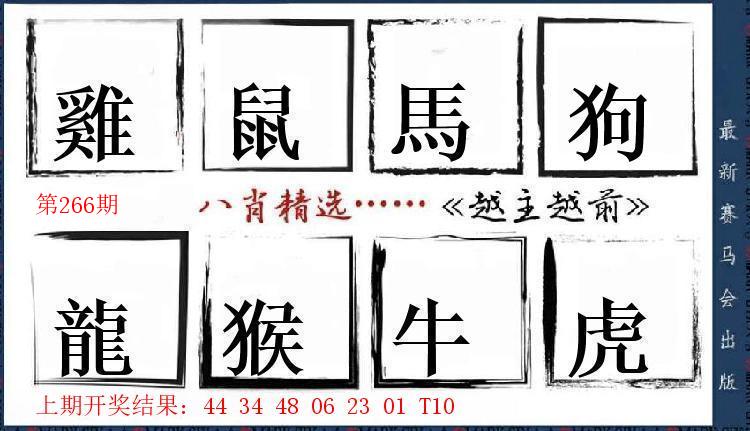 雞 鼠 馬 狗
第266期 八肖精选……《越主越前》
龍 猴 牛 虎
上期开奖结果：44 34 48 06 23 01 T10
最新赛马会出版